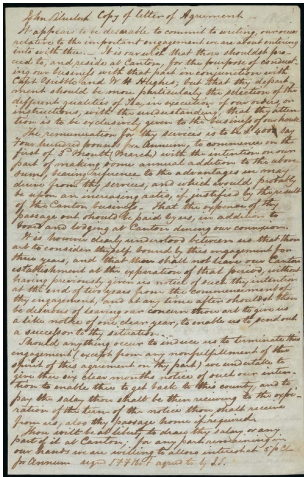 John Bluelock Copy of letter of Agreement
It appears to be desirable to commit to writing, our views
relative to the important engagement we are about entering
into with thee. It is intended that thou shouldst pro-
ceed to, and reside at Canton, for the purpose of conduct-
ing our business with that port in conjunction with
and W H, but that thy depart-
ment should be more particularly the selection of the
different qualities of Tea, in execution of our orders or
instructions, with the understanding, that thy atten-
tion is to be exclusively given to the business of our house
The remuneration for thy services is to be £400 say
Four hundred pounds per Annum, to commence on the
first of 3rd month (March) with the intention on our
part of making some annual addition to the above
sum, bearing reference to the advantages we may
derive from thy services, and which would probably
be upon an increasing rate if justified by the result
of the Canton business. That the expense of thy
passage out should be paid by us, in addition to
board and lodging at Canton during our connexion.
It is however clearly understood between us that thou
art to consider thyself bound by this engagement for
three years, and that thou shalt not leave our Canton
establishment at the expiration of that period, without
having previously given us notice of such thy intention
at the end of two years from the commencement of
thy engagement, and at any time after shouldst thou
be desirous of leaving our concern thou art to give us
a like notice of one clear year, to enable us to send out
a successor to thy situation.
Should anything occur to induce us to terminate this
engagement (except from any nonfulfillment of the
spirit of this agreement on thy part) we undertake to
give thee one clear months notice of such our inten-
tion to enable thee to get back to this country, and to
pay the salary thou shalt be then receiving to the expi-
ration of the term of the notice thou shalt receive
from us, also thy passage home if required.
Thou wilt be at liberty to draw thy salary or any
part of it at Canton, for any part remaining in
our hands we are willing to allow interest at 5 p Ct
per Annum agreed to by